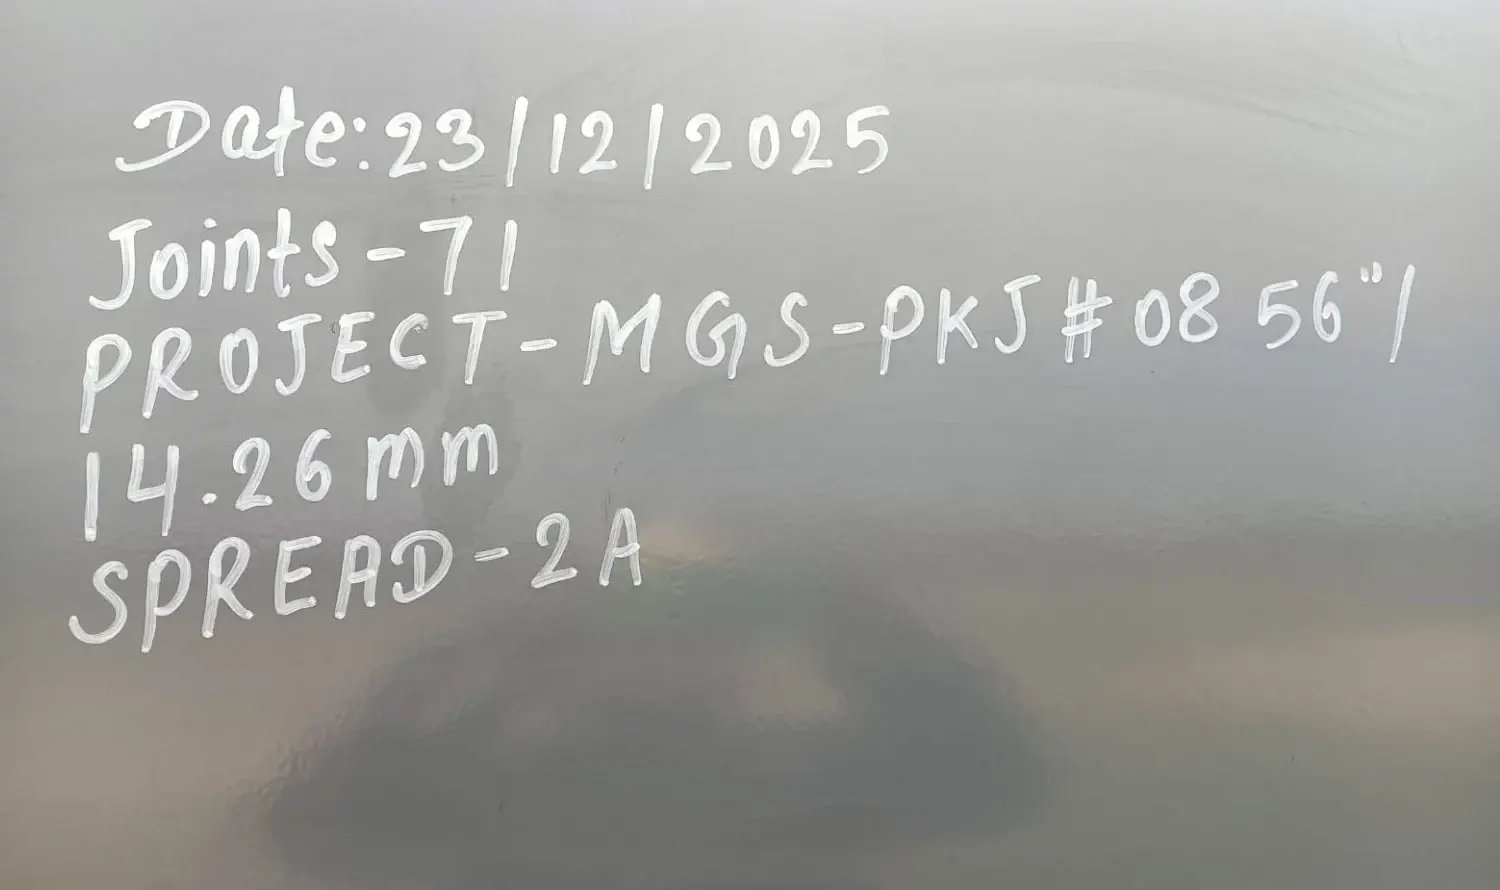 Date:23/12/2025
Joints-71
PROJECT-MGS-PKJ#08 56"/
14.26mm
SPREAD-2A